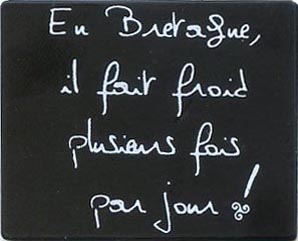 En Bretagne,
il fait froid
plusieurs fois
par jour !